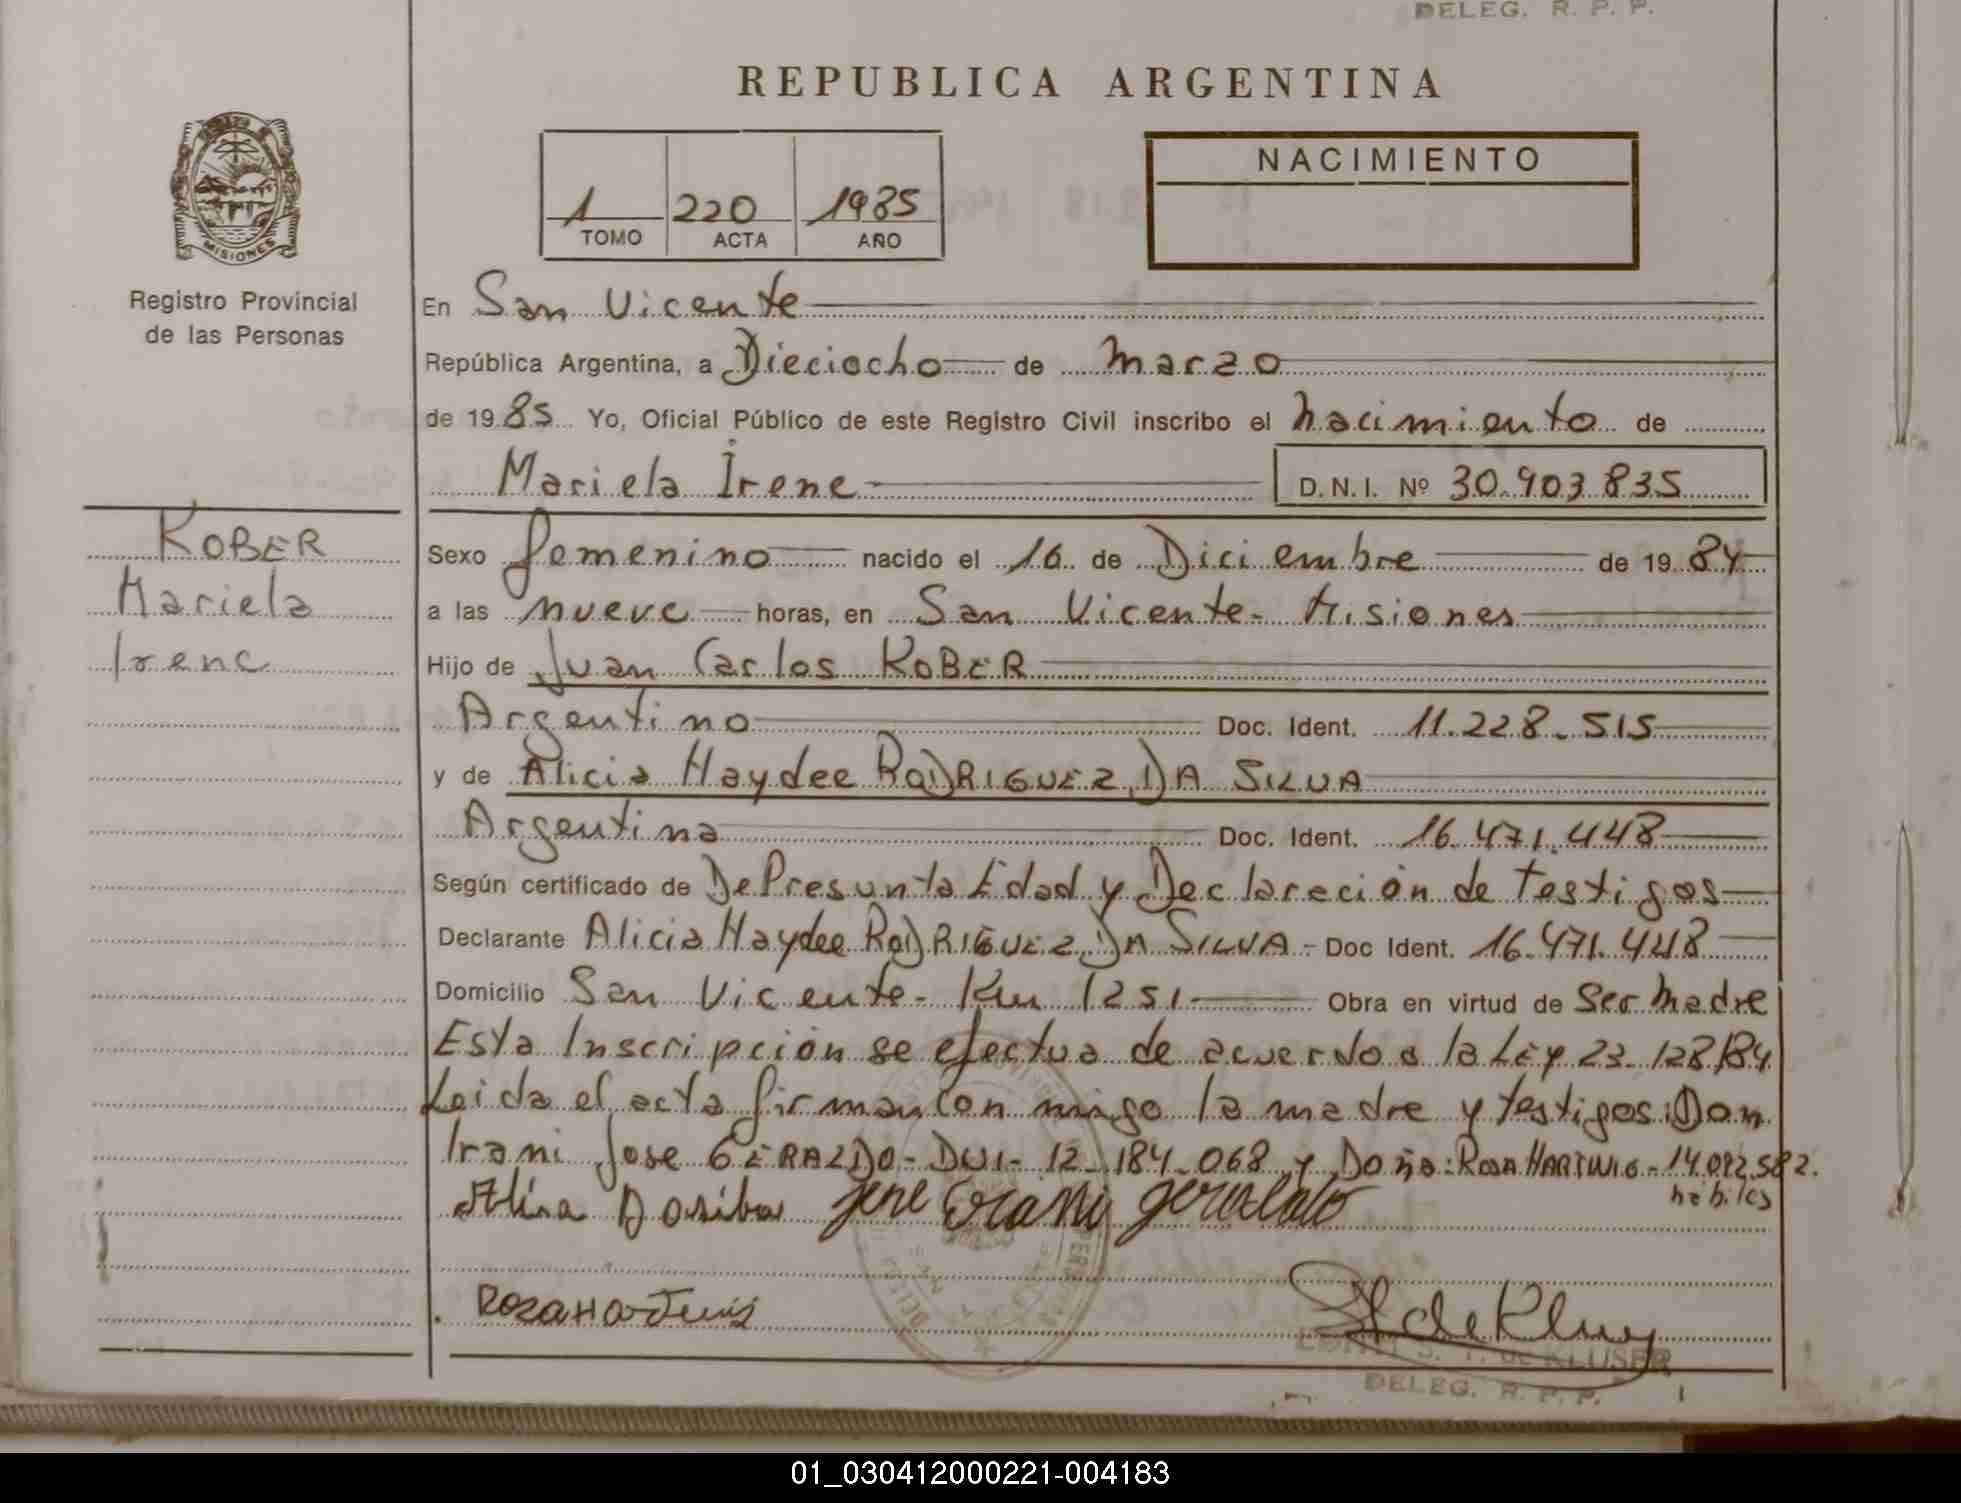 DELEG. R. P. P.
REPUBLICA ARGENTINA
1 220 1985
TOMO ACTA AÑO
NACIMIENTO
MISIONES
Registro Provincial
de las Personas
En San Vicente
República Argentina, a Dieciocho de Marzo
de 1985 Yo, Oficial Público de este Registro Civil inscribo el Nacimiento de
Mariela Irene D.N.I. Nº 30.903.835
KOBER
Mariela
Irene
Sexo femenino nacido el 16 de Diciembre de 1984
a las nueve horas, en San Vicente - Misiones
Hijo de Juan Carlos KOBER
Argentino Doc. Ident. 11.228.515
y de Alicia Haydee RODRIGUEZ DA SILVA
Argentina Doc. Ident. 16.471.448
Según certificado de De Presunta Edad y Declareción de testigos
Declarante Alicia Haydee RODRIGUEZ DA SILVA - Doc Ident. 16.471.448
Domicilio San Vicente - Km 1251 - Obra en virtud de Ser Madre
Esta Inscripción se efectua de acuerdo a la LEY 23.128/84
Leida el acta firman con migo la madre y testigos: Don
Irani Jose GERALDO - DNI - 12.184.068 y Doña: ROSA HARTWIG - 14.092.582.
habiles
jose Irani geraldo
Rosa Hartwig
S. T. de KLUSER
DELEG. R. P. P.
01_030412000221-004183